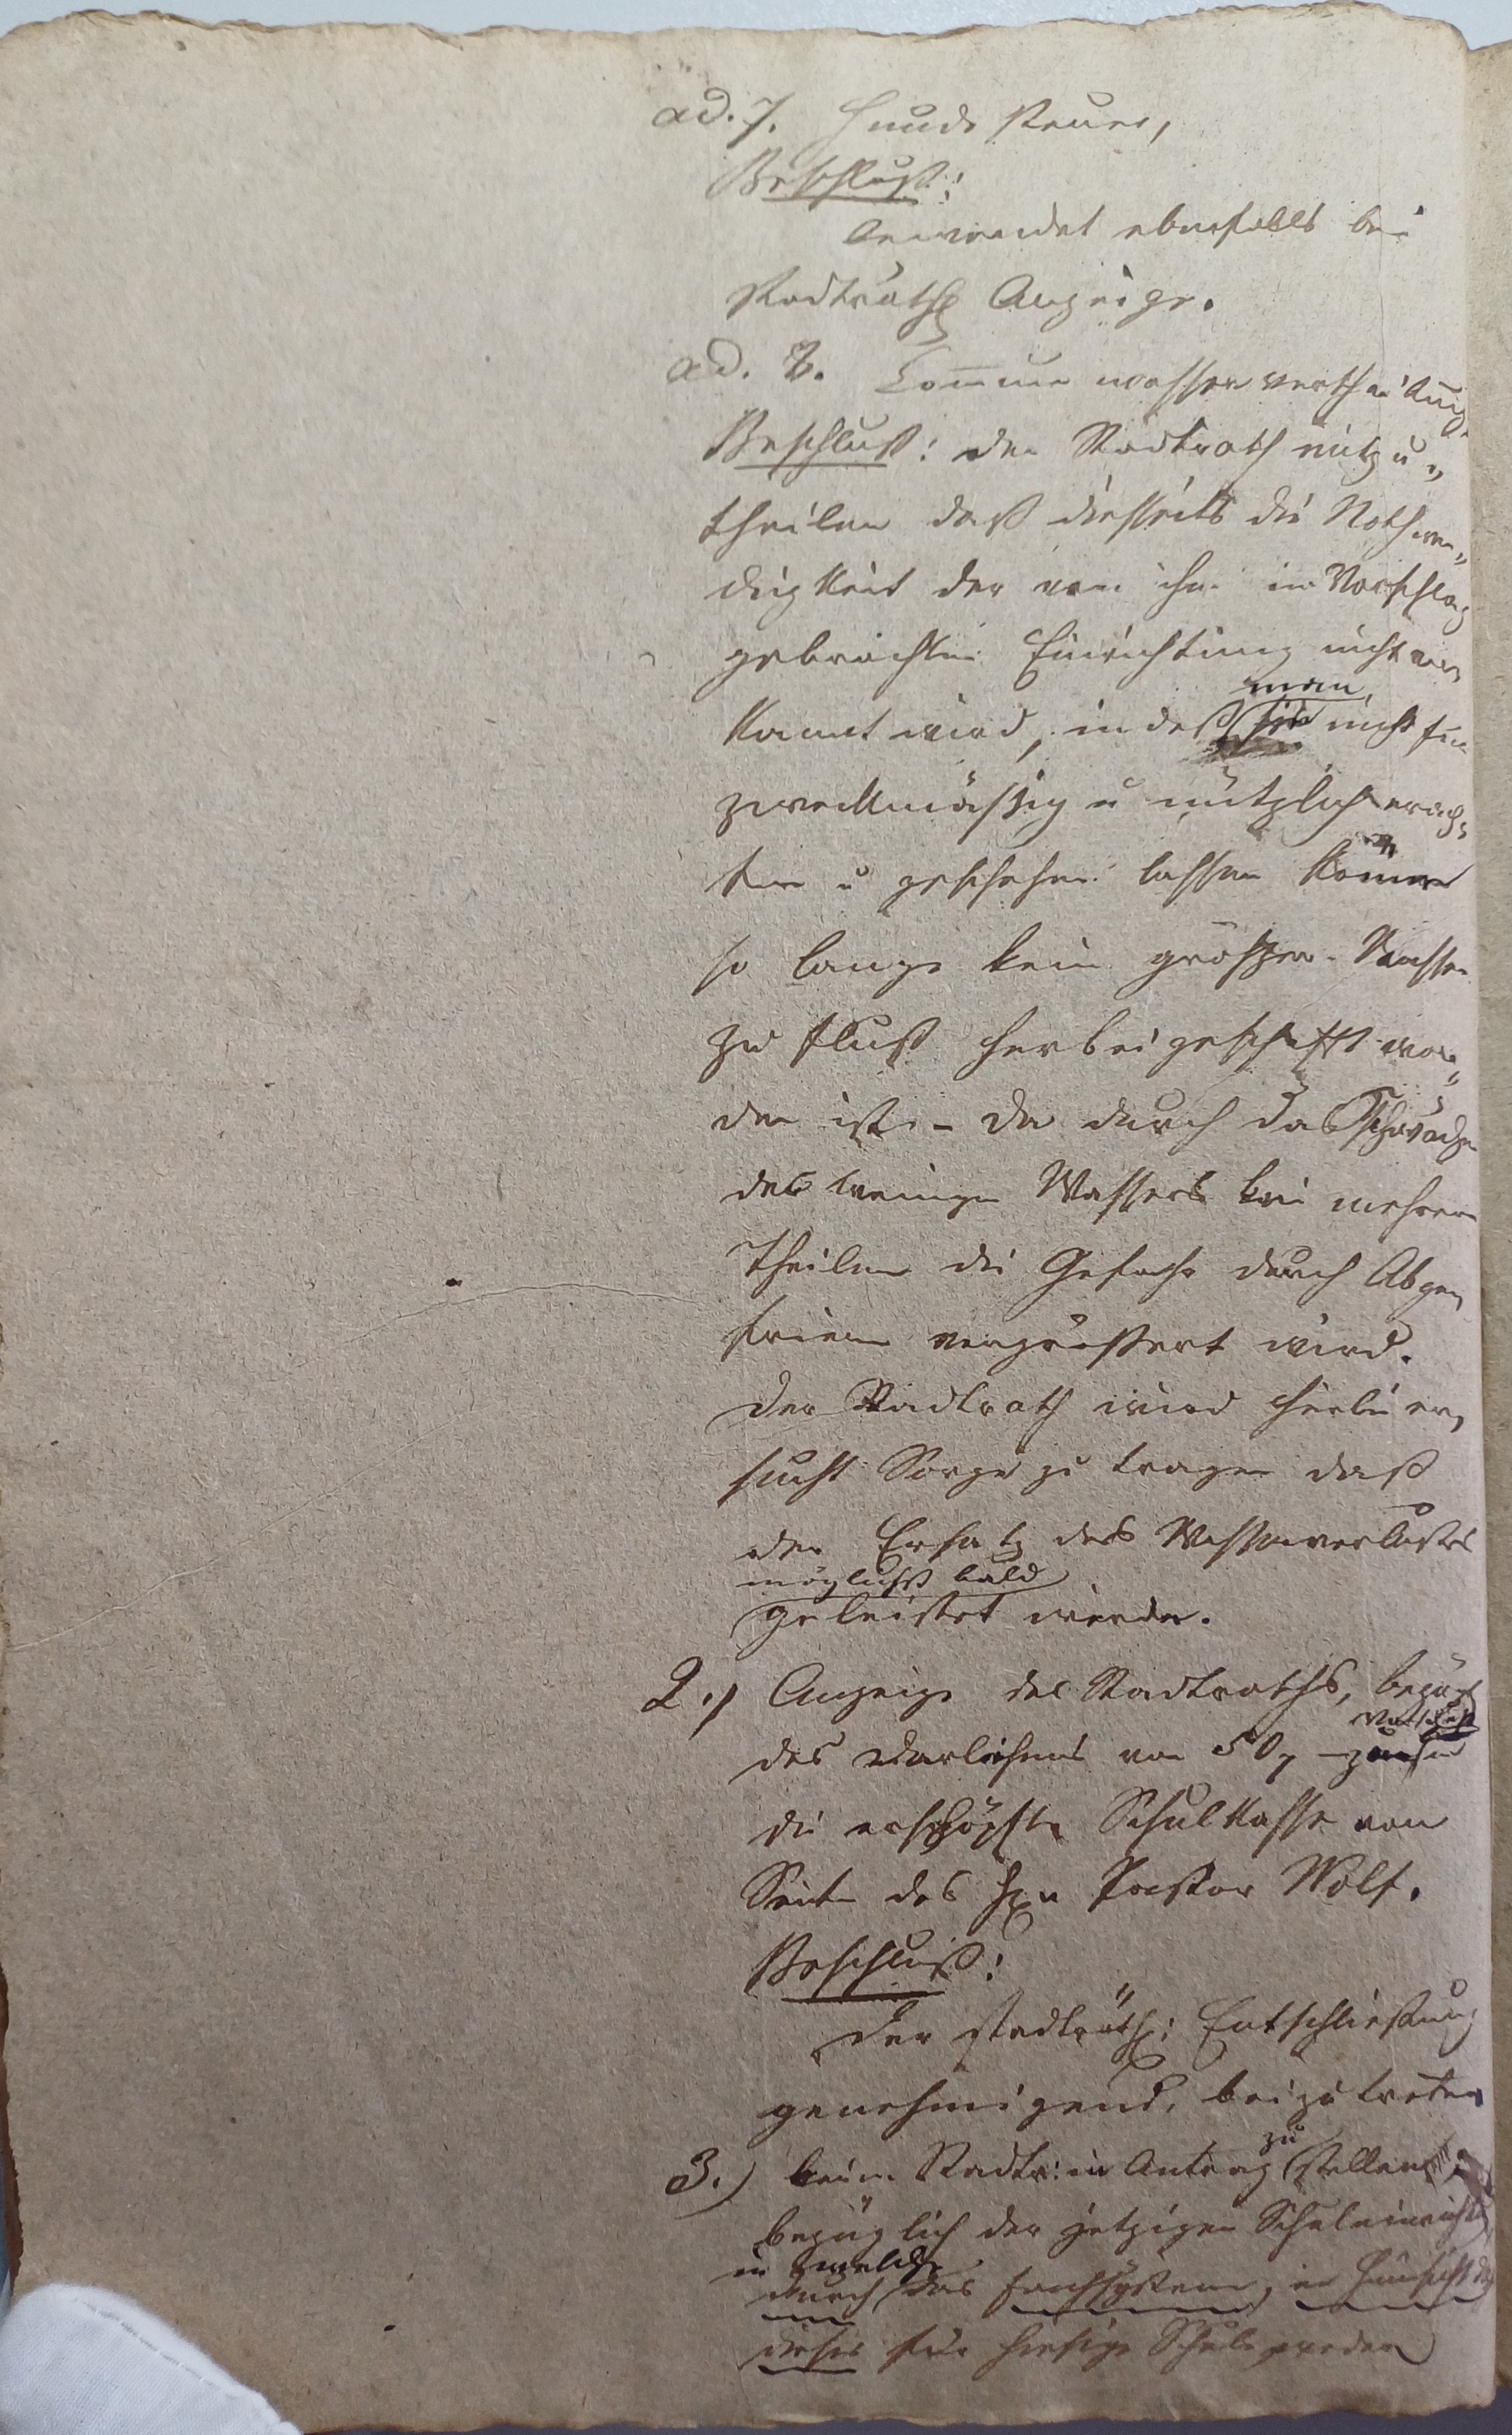 ad. 7. Hundesteuer,
Beschluß:
bewendet ebenfalls bei
stadträthl Anzeige.
ad. 8. Communwasservertheilung.
Beschluß: den Stadtrath mitzu„
theilen daß diesseits die Nothwen„
digkeit der von ihm in Vorschlag
gebrachten Einrichtung nicht ver
kannt wird, indeß man nicht für
zweckmäßig u nützlich erach„
ten u geschehen lassen könne
so lange kein größerer Wasser
zufluß herbeigeschafft wor„
den ist. - da durch das Schwächen
des wenigen Wassers bei mehrern
Theilen die Gefahr durch Abge„
frieren vergrößert wird.
Der Stadtrath wird hierbei er„
sucht Sorge zu tragen daß
der Ersatz des Wasserverlustes
möglichst bald
geleistet werde.
2.) Anzeige des Stadtraths, bezügl
des Darlehens von 50
die erschöpfte Schulkasse von
Seiten des Hrn Pastor Wolf.
Beschluß:
Der stadträthl: Entschließung
genehmigend, beizutreten
3.) beim Stadtr: in Antrag zu stellen
bezüglich der jetzigen Schuleinricht
in welche
durch das Fachsystem, in Hinsicht
dieses für hiesige Schule